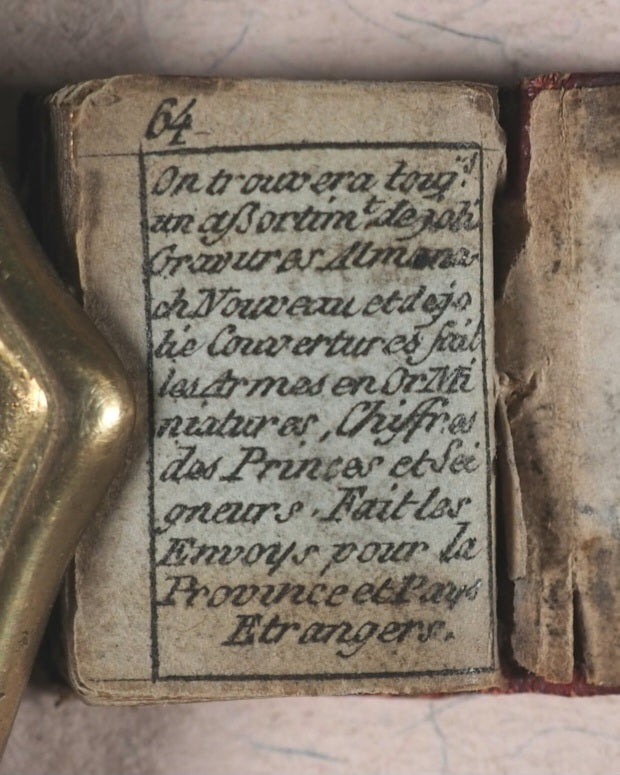 64
On trouvera touj.rs
un aßortim.t de joli
Gravures Almana
ch Nouveau et de jo
lie Couvertures fait
les Armes en Or Mi
niatures, Chiffres
des Princes et Sei
gneurs. Fait les
Envoys pour la
Province et Pays
Etrangers.